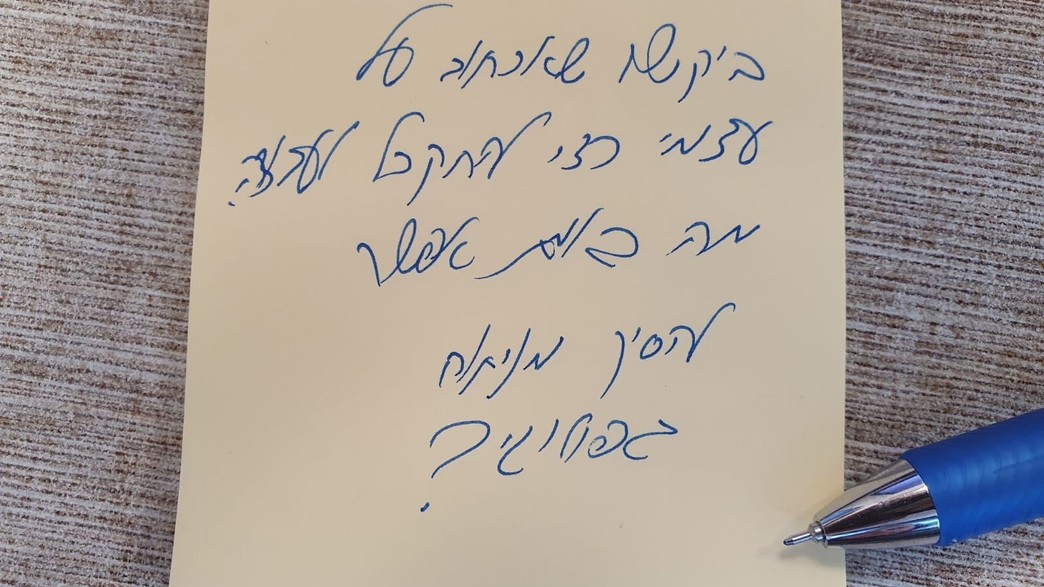 ביקשת שאכתוב על
עצמי כדי להתקבל לעבודה.
מה באמת אפשר
להסיק מניתוח
גרפולוגי?